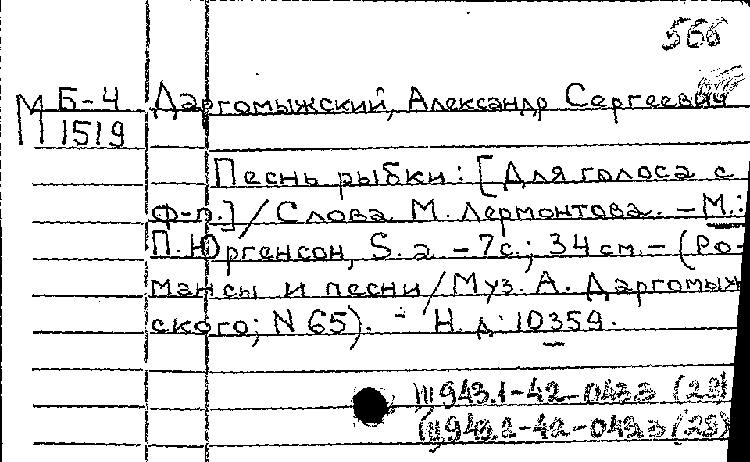 566
М Б-4 Даргомыжский, Александр Сергеевич
1519
Песнь рыбки: [Для голоса с
ф-п.] / Слова М. Лермонтова. - М.:
П. Юргенсон, S. a. - 7с.; 34 см. - (Ро-
мансы и песни / Муз. А. Даргомыж
ского; N 65). - Н. д: 10359.
Ш943.1-42-043з (28)
(Ш943.2-42-049з (28)